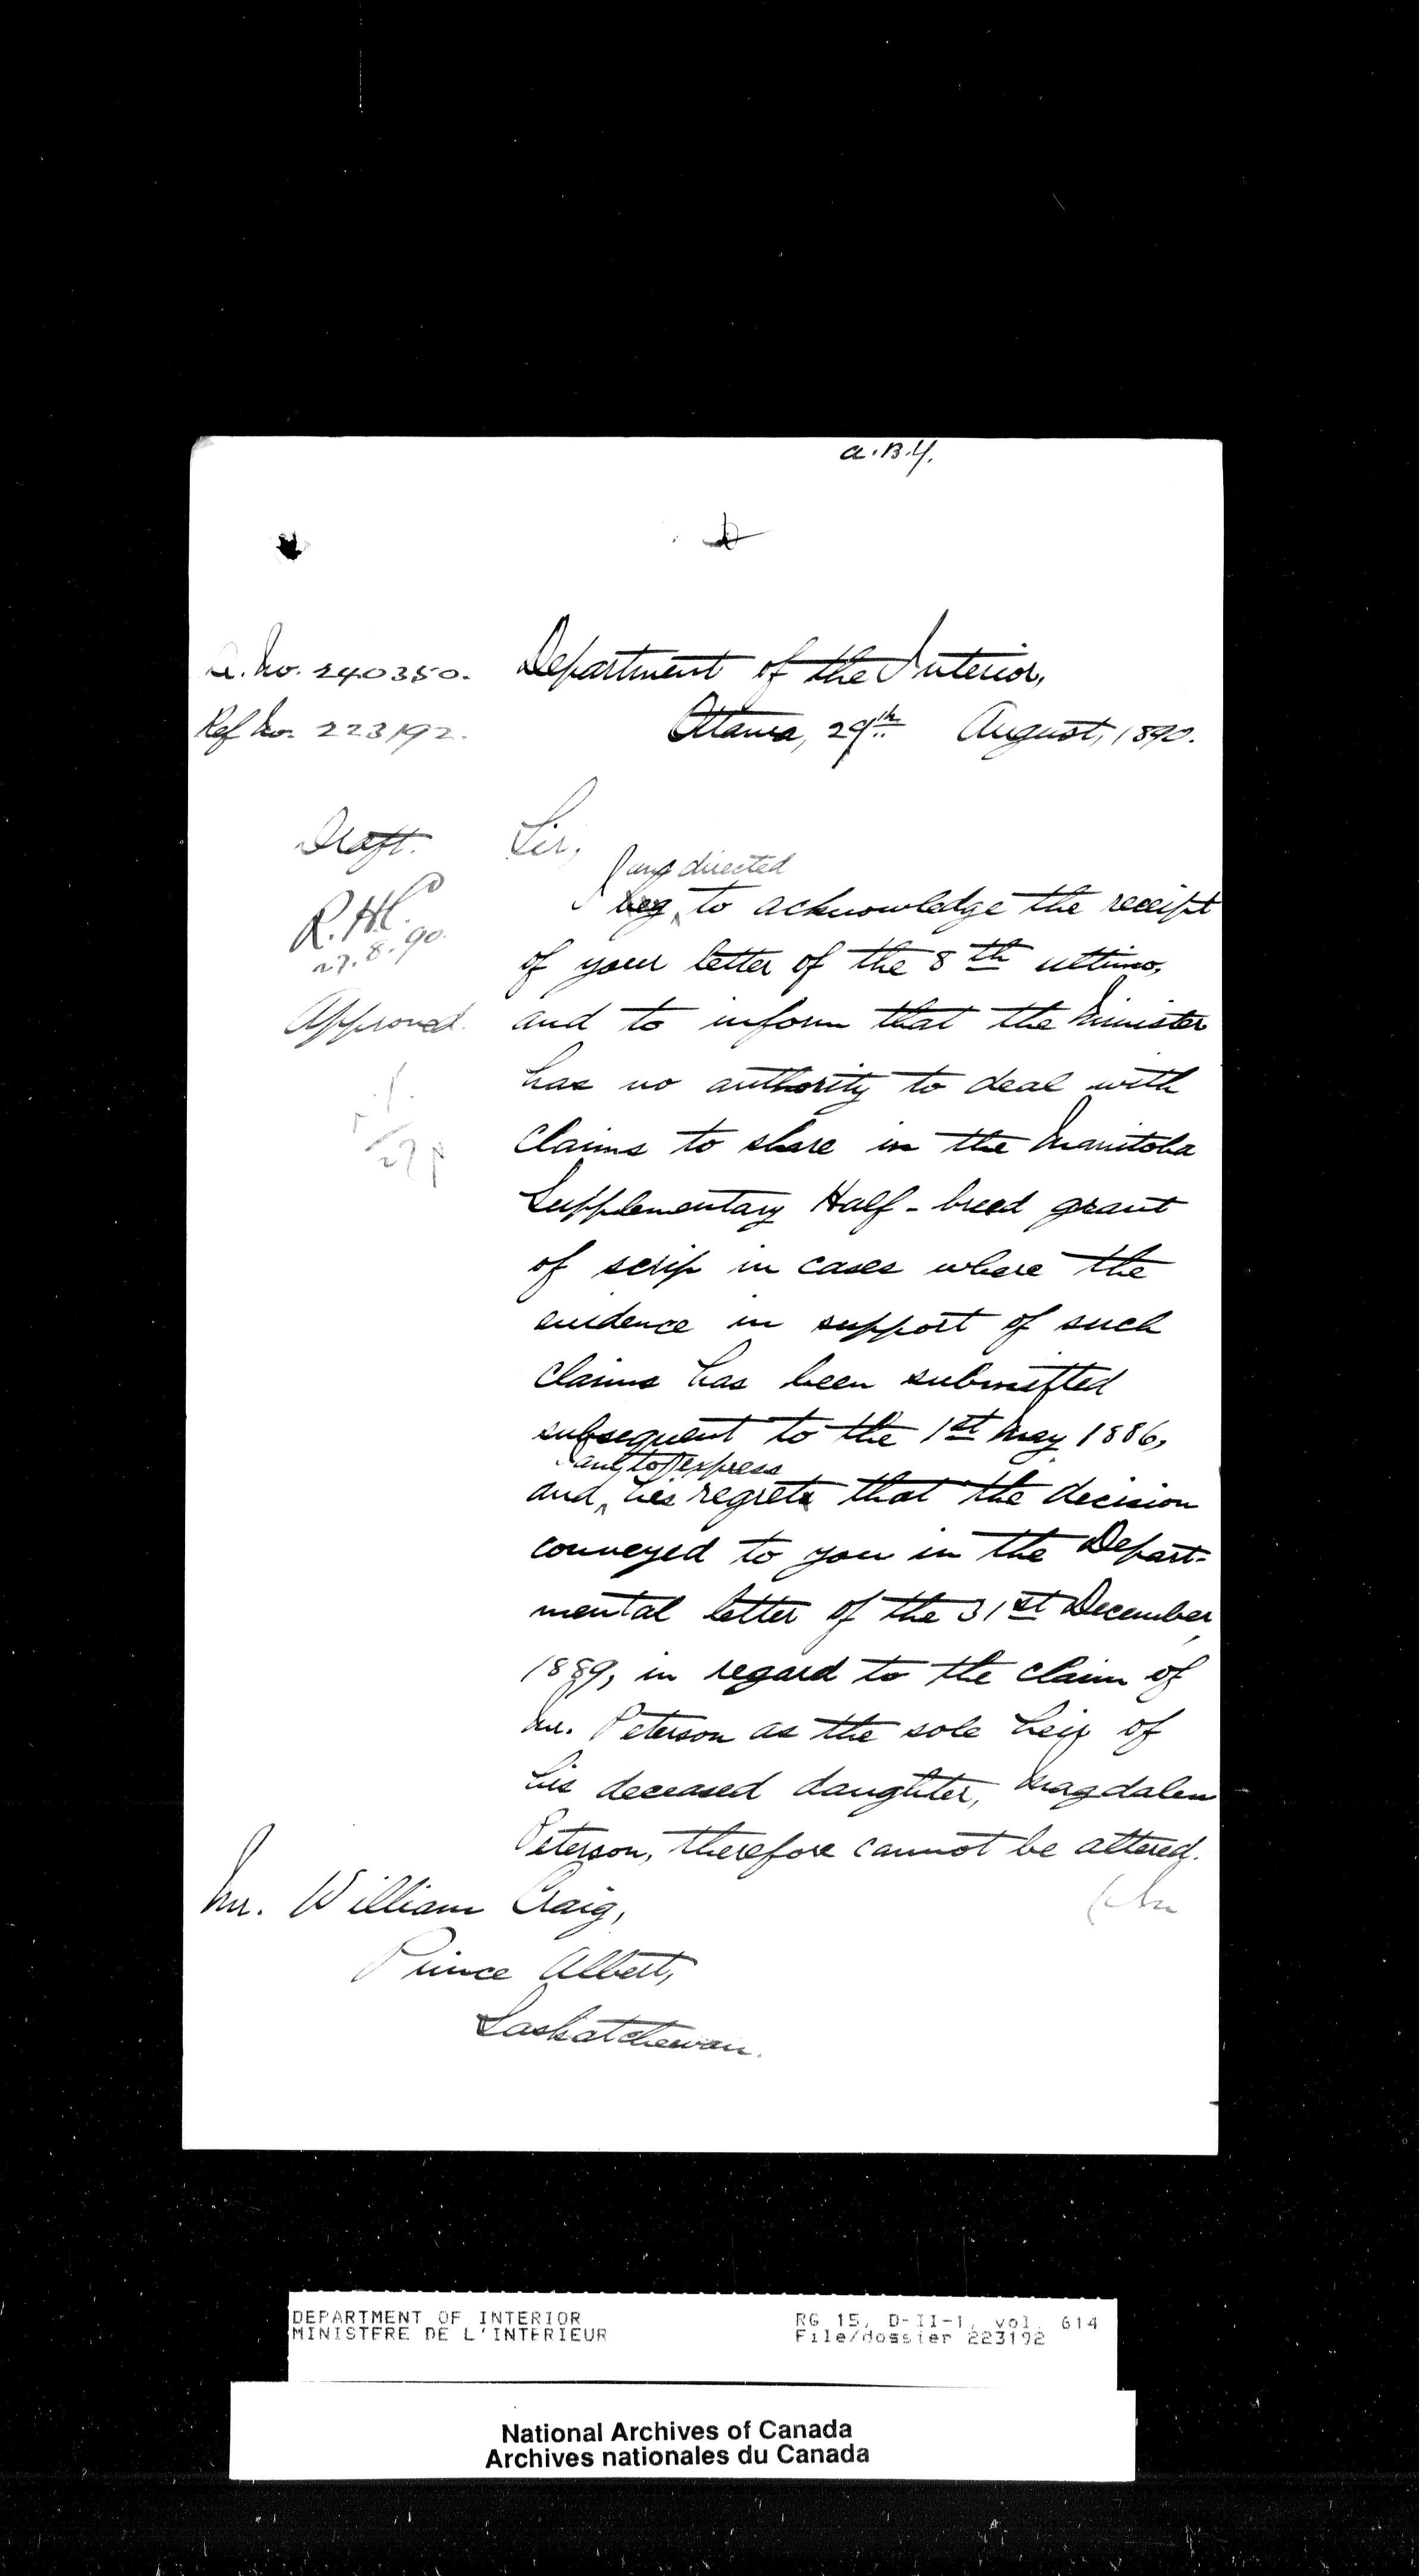 A.B.Y.
A. No. 240350. Department of the Interior,
Ref No. 223192. Ottawa, 29th August, 1890.
Draft. Sir,
am directed
I beg to acknowledge the receipt
of your letter of the 8th ultimo,
and to inform that the Minister
has no authority to deal with
claims to share in the Manitoba
Supplementary Half-breed grant
of scrip in cases where the
evidence in support of such
claims has been submitted
subsequent to the 1st May 1886,
and to express
and, his regrets that the decision
conveyed to you in the Depart-
mental letter of the 31st December,
1889, in regard to the claim of
Mr. Peterson as the sole heir of
his deceased daughter, Magdalen
Peterson, therefore cannot be altered.
R.H.C.
27.8.90.
Approved.
Mr. William Craig,
Prince Albert,
Saskatchewan.
DEPARTMENT OF INTERIOR
MINISTERE DE L'INTERIEUR
RG 15, D-II-1, vol. 614
File/dossier 223192
National Archives of Canada
Archives nationales du Canada